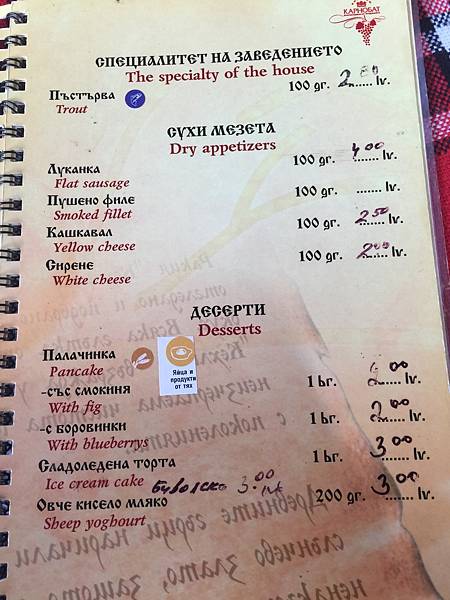 КАРНОБАТ
СПЕЦИАЛИТЕТ НА ЗАВЕДЕНИЕТО
The specialty of the house
Пъстърва 100 gr. lv.
Trout
СУХИ МЕЗЕТА
Dry appetizers
Луканка 100 gr. 4 00 lv.
Flat sausage
Пушено филе 100 gr. ....... lv.
Smoked fillet
Кашкавал 100 gr. 2 50 lv.
Yellow cheese
Сирене 100 gr. 2 00 lv.
White cheese
ДЕСЕРТИ
Desserts
Палачинка
Pancake
Яйца и
продукти
от тях
-със смокиня 1 br. 2 00 lv.
With fig
-с боровинки 1 br. 2 00 lv.
With blueberrys
Сладоледена торта 1 br. 3 00 lv.
Ice cream cake Биволско 3 00 лв
Овче кисело мляко 200 gr. 3 00 lv.
Sheep yoghourt